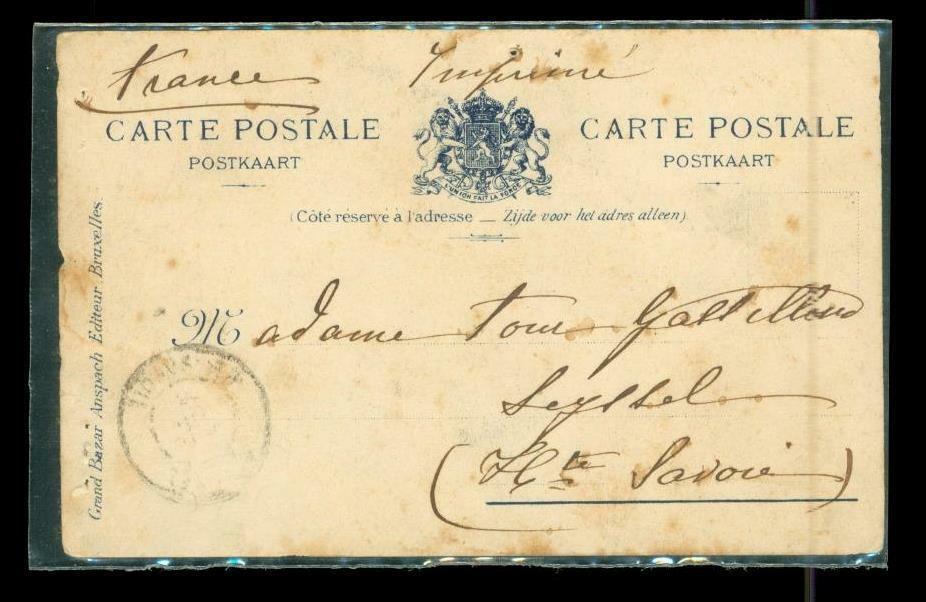 France Imprimé
CARTE POSTALE CARTE POSTALE
POSTKAART POSTKAART
L'UNION FAIT LA FORCE
(Côté réservé à l'adresse — Zijde voor het adres alleen)
Grand Bazar Anspach Editeur Bruxelles.
Madame
Seyssel
(Hte Savoie)